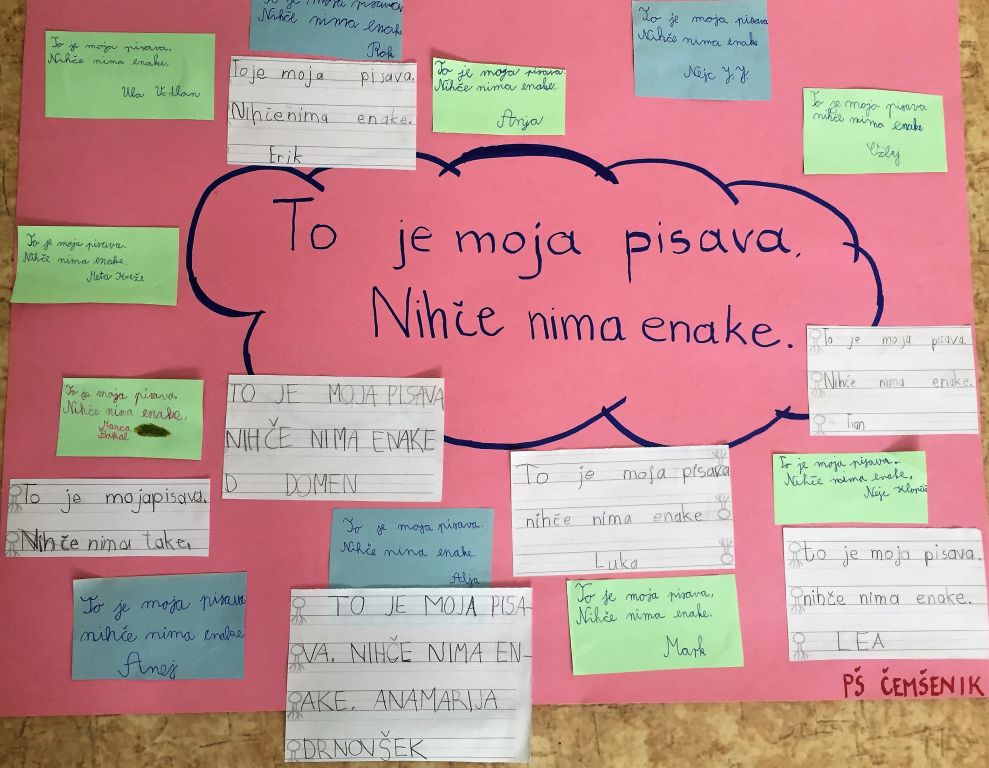 To je moja pisava.
Nihče nima enake.
Rok
To je moja pisava.
Nihče nima enake.
Nejc J. J.
To je moja pisava.
Nihče nima enake.
Ula
Toje moja pisava.
Nihčenima enake.
Erik
To je moja pisava.
Nihče nima enake.
Anja
To je moja pisava
nihče nima enake
To je moja pisava.
Nihče nima enake.
To je moja pisava.
Nihče nima enake.
Meta
To je moja pisava.
Nihče nima enake.
Tian
To je moja pisava.
Nihče nima enake.
Manca
TO JE MOJA PISAVA
NIHČE NIMA ENAKE
D DOMEN
To je moja pisava
nihče nima enake
Luka
To je moja pisava.
Nihče nima enake.
Nejc Klopčič
To je mojapisava.
Nihče nima take.
To je moja pisava.
Nihče nima enake.
Alja
to je moja pisava.
nihče nima enake.
LEA
To je moja pisava
nihče nima enake
Anej
TO JE MOJA PISA-
VA. NIHČE NIMA EN-
AKE. ANAMARIJA
DRNOVŠEK
To je moja pisava.
Nihče nima enake.
Mark
PŠ ČEMŠENIK